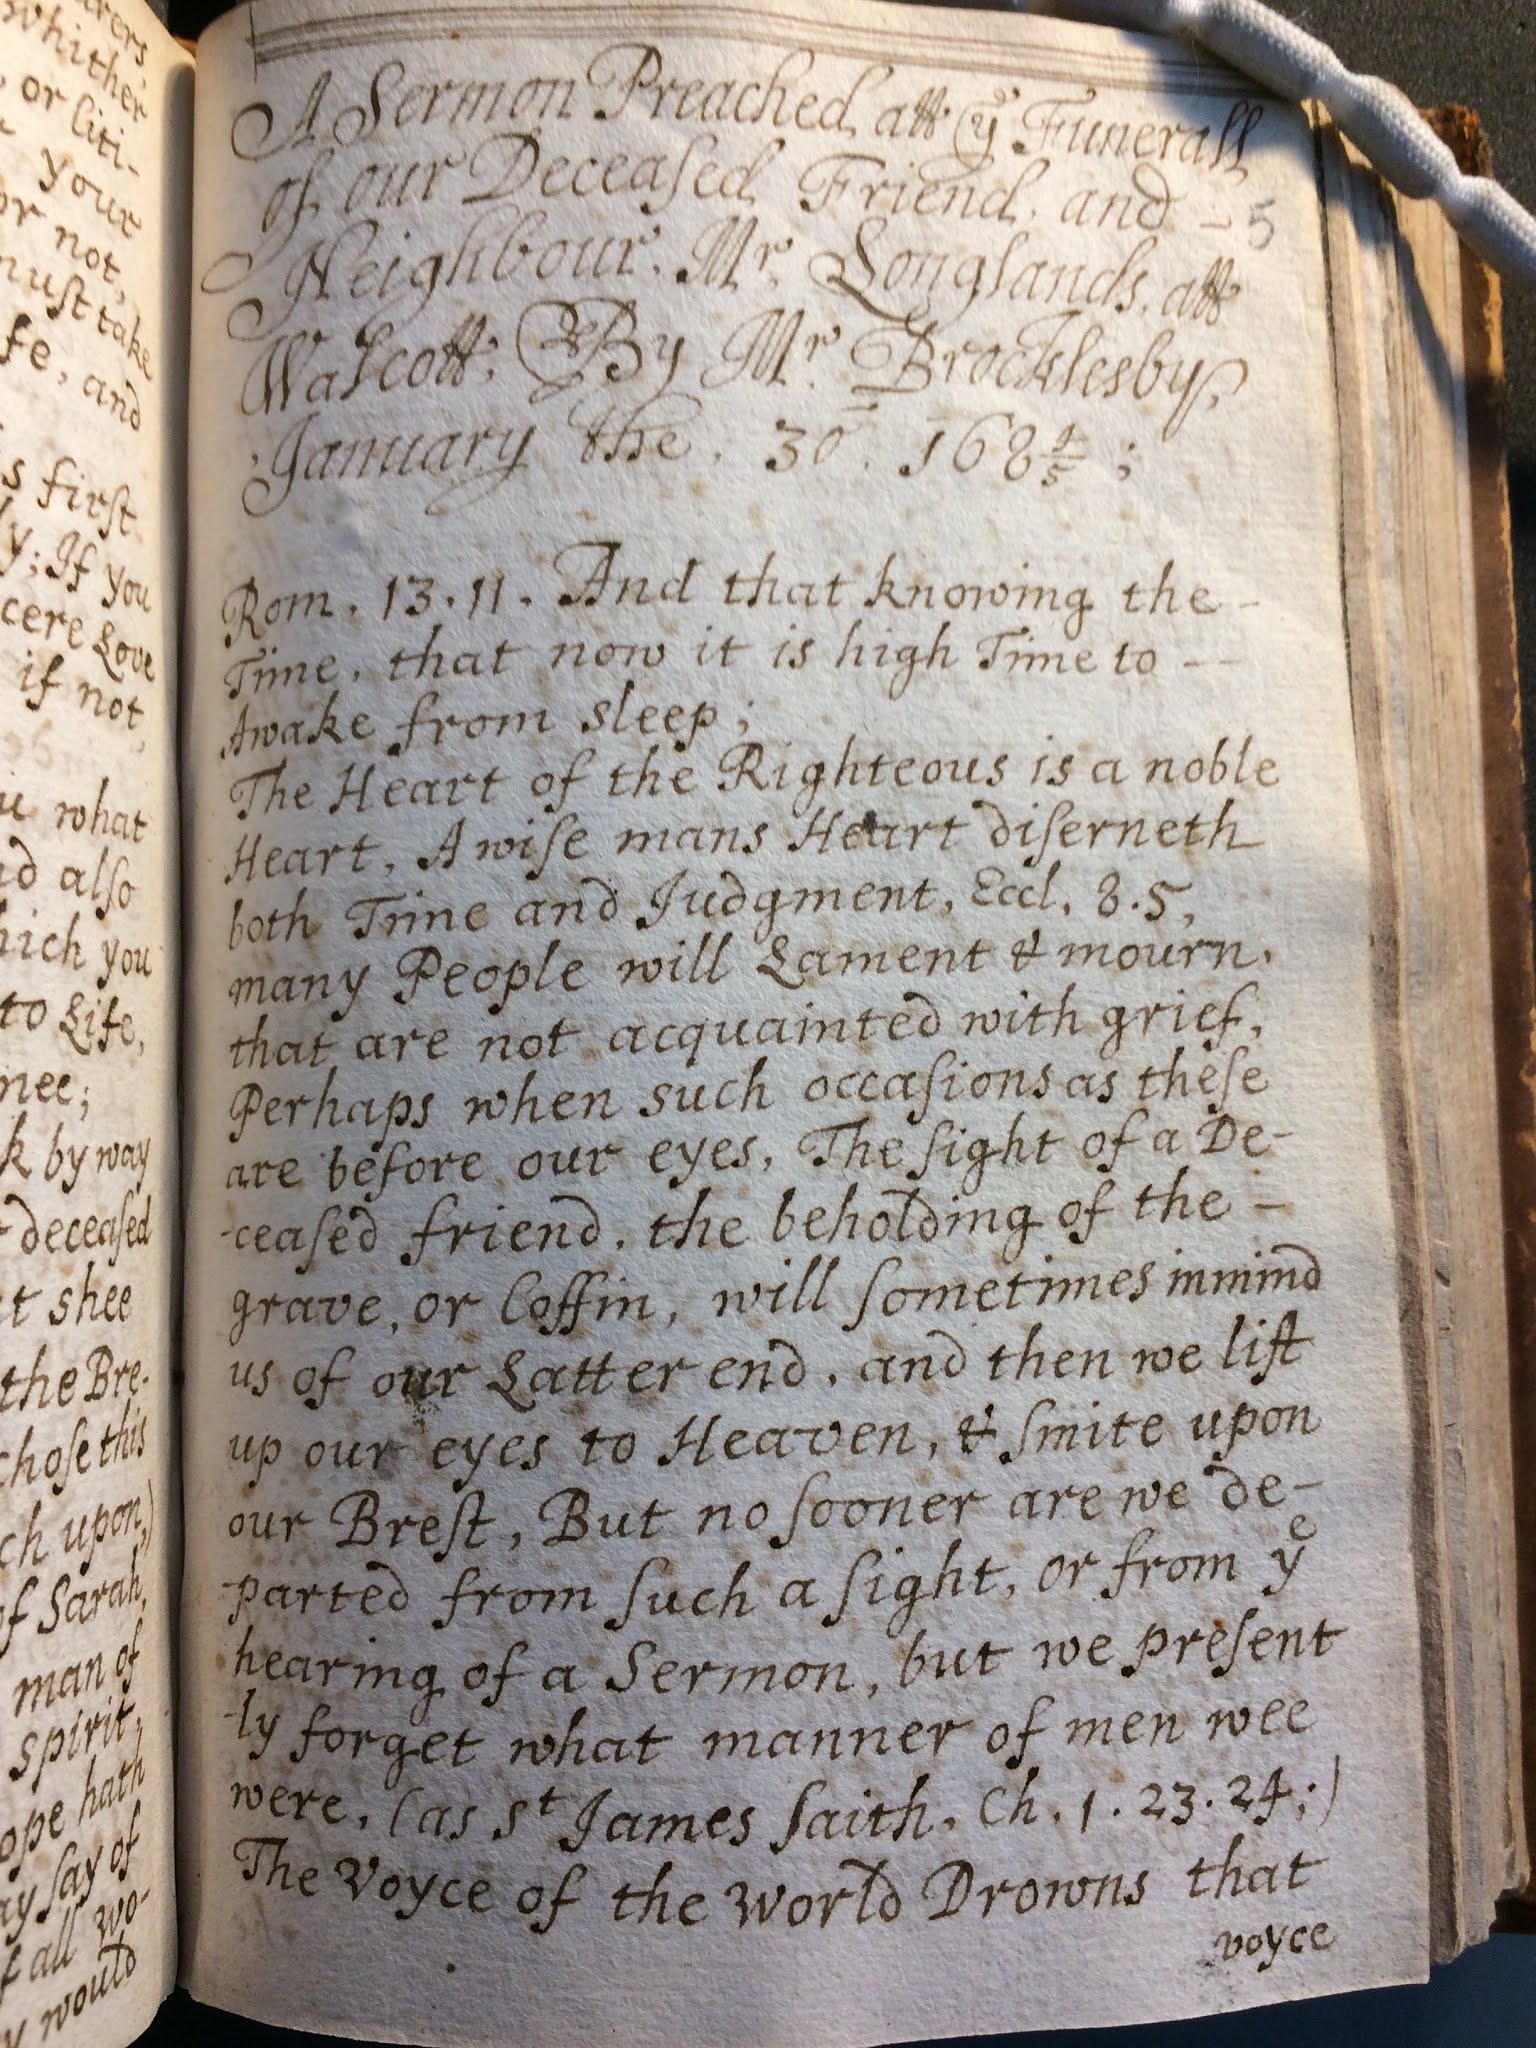 vers
whither
, or liti-
your
or not,
must take
fe, and
s first
ly; If you
cere Love
if not,
u what
nd also
hich you
to Life,
mee;
k by way
r deceased
t shee
the Bre-
chose this
ch upon,)
of Sarah,
man of
spirit,
ope hath
ay say of
f all wo-
y would
A Sermon Preached att yͤ Funerall
of our Deceaſed Friend, and - 5
Neighbour, Mr. Longlands, att
Walcott; By Mr. Brocklesby,
January the. 30. 168 4/5 ;
Rom. 13.11. And that knowing the -
Time, that now it is high Time to --
Awake from sleep;
The Heart of the Righteous is a noble
Heart, A wiſe mans Heart diſerneth
both Time and Judgment, Eccl. 8.5,
many People will Lament & mourn,
that are not acquainted with grief,
Perhaps when such occaſions as theſe
are before our eyes, The ſight of a De-
-ceaſed friend, the beholding of the -
grave, or Coffin, will ſometimes inmind
us of our Latter end, and then we lift
up our eyes to Heaven, & ſmite upon
our Breſt, But no ſooner are we de-
-parted from ſuch a ſight, or from yͤ
hearing of a Sermon, but we preſent
-ly forget what manner of men wee
were, (as St James ſaith, Ch. 1. 23. 24;)
The Voyce of the World Drowns that
voyce